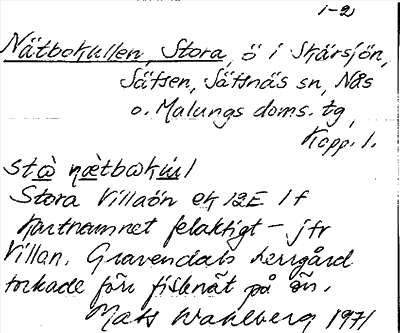 1-2
Nätbokullen, Stora, ö i Skärsjön,
Sätsen, Säfsnäs sn, Nås
o. Malungs doms. tg,
Kopp. l.
stɷ̀ næ̀tbɷkùl
Stora Villaön ek 12E 1f
Kartnamnet felaktigt – jfr
Villan. Gravendals herrgård
torkade förr fisknät på ön.
Mats Wahlberg 1971